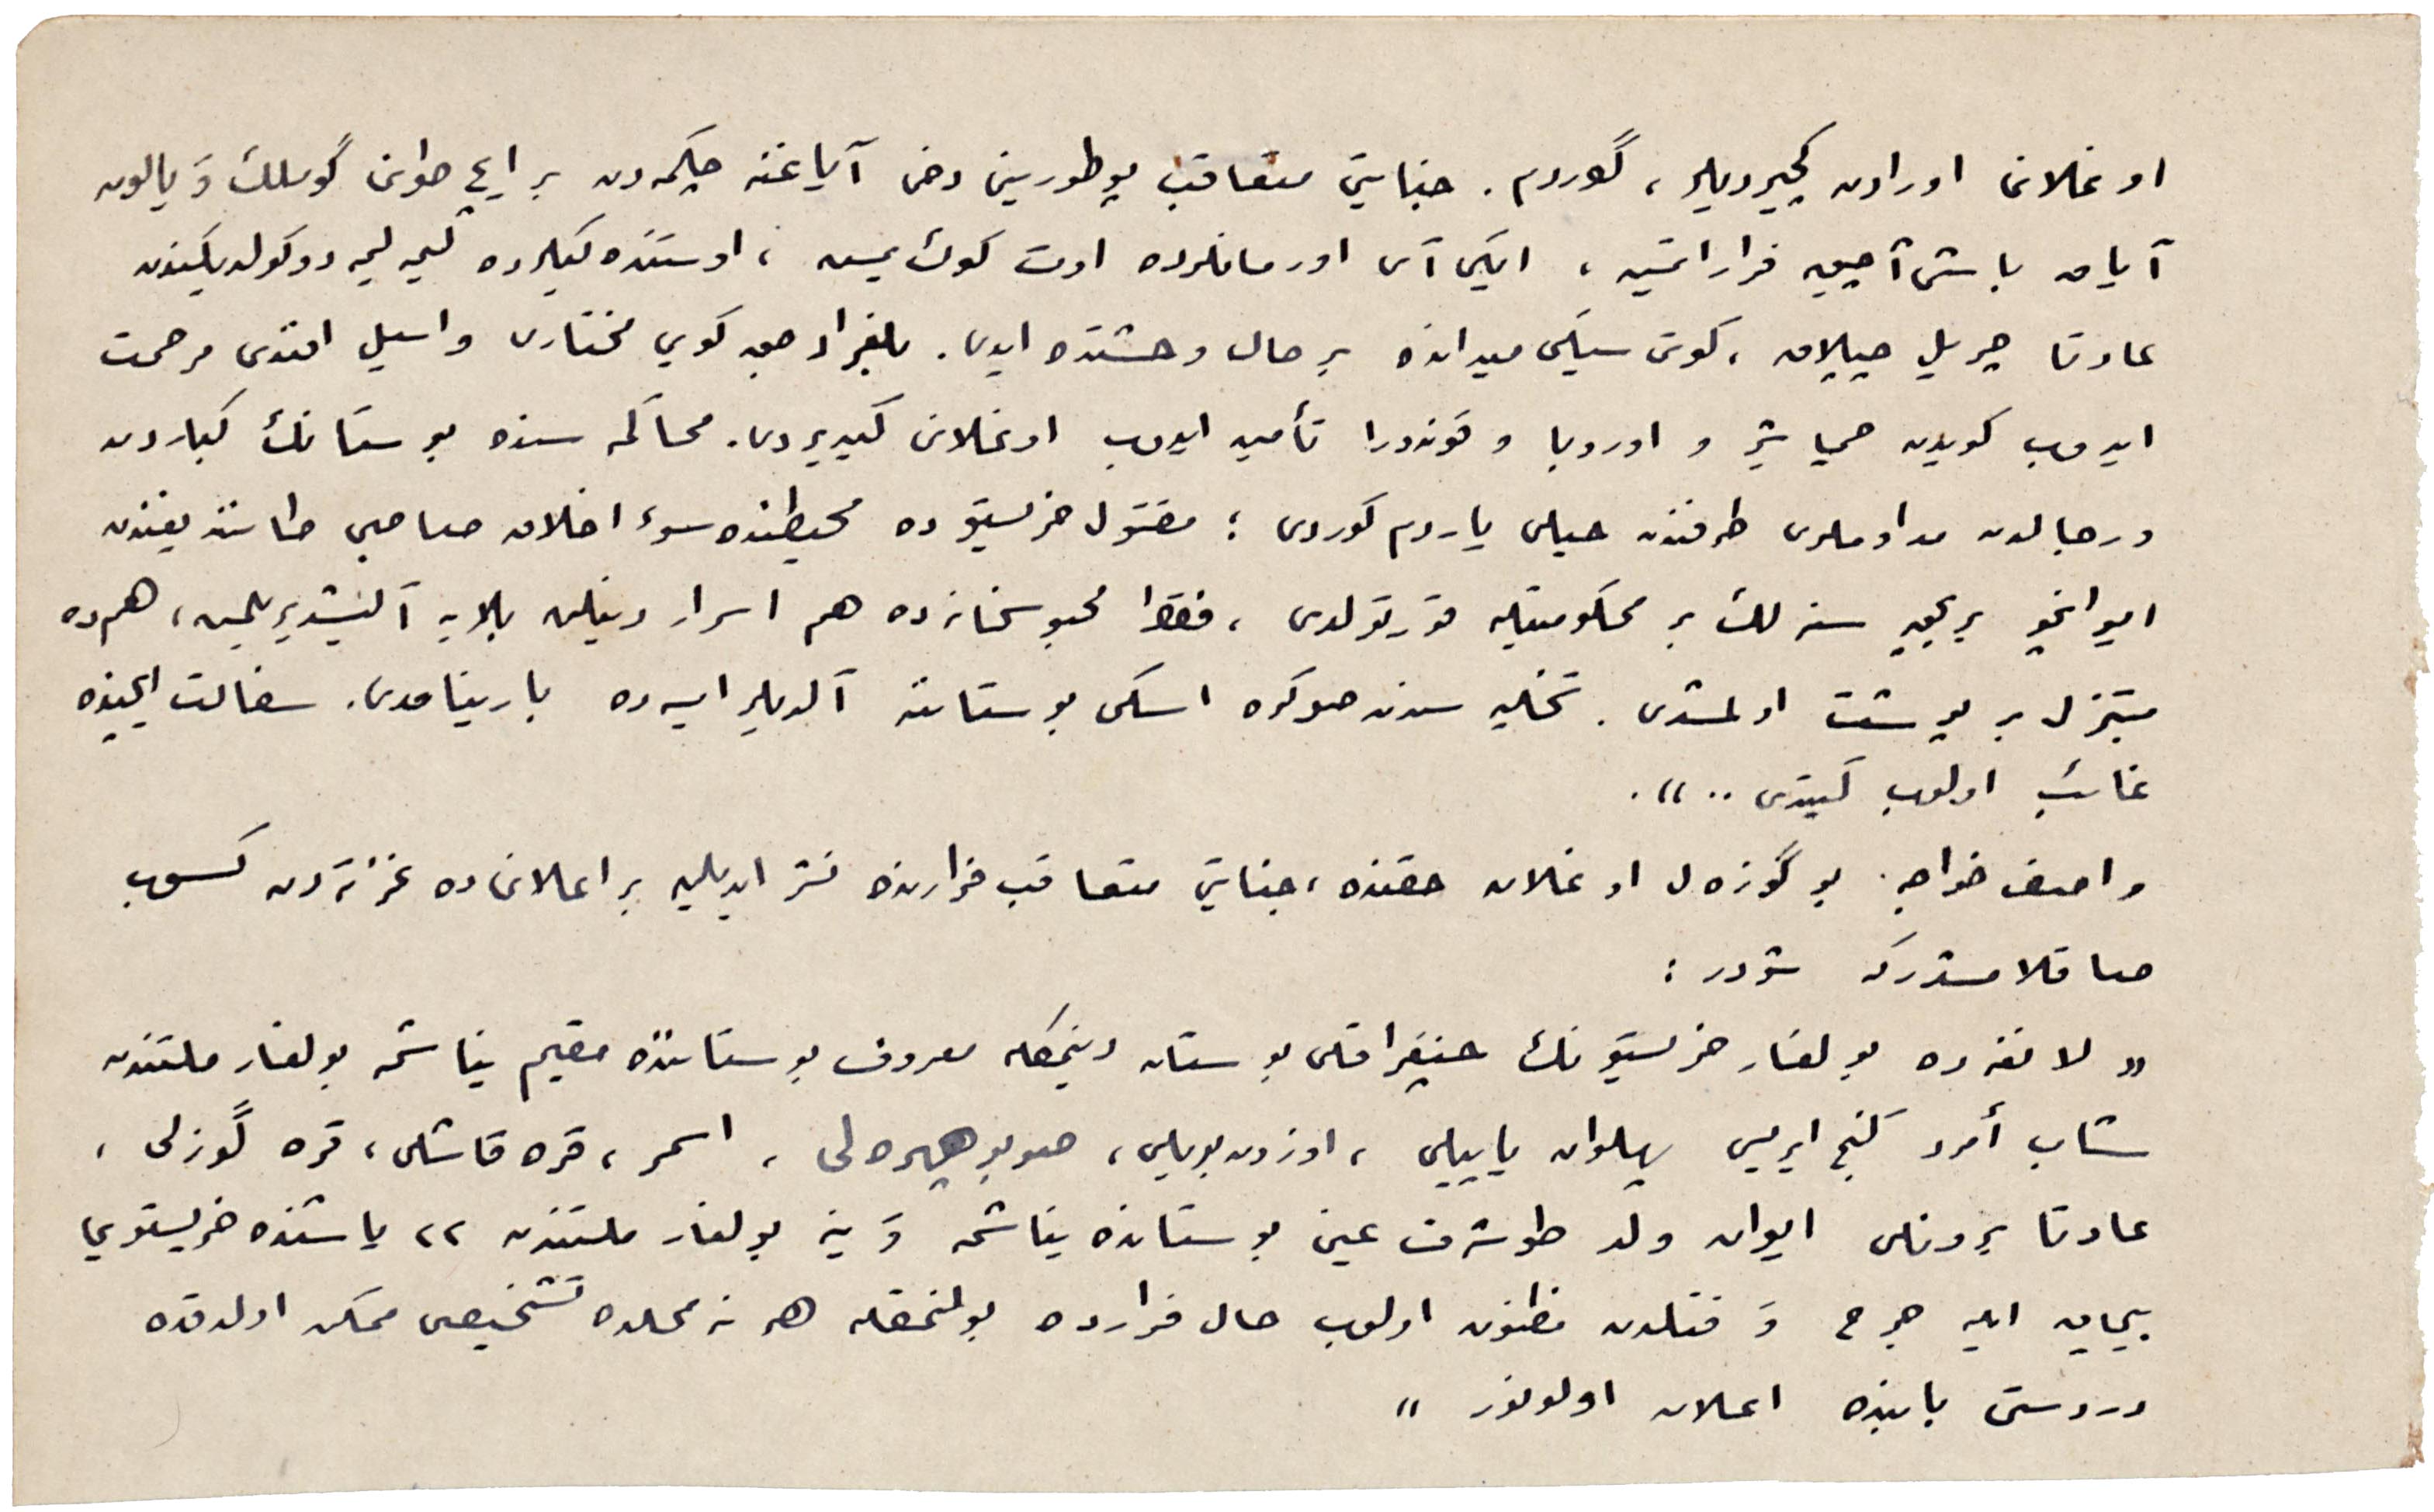 اوغلانی اورادن كچیردیلر ، گوردم . جنایتی متعاقب پوطورینی دخی آیاغنه چكمه‌دن بر ایچ طونی گوملك وَ یالین
آیاق باشی آچیق فرار ایتمش ، ایكی آی اورمانلرده اوت كوك یمیش ، اوستنده كیلرده لیمه لیمه دوكولدیكیندن
عادتا چریل چیپلاق ، كوتی سیكی میدانده بر حال وحشتده ایدی . بلغراد جق كویی مختاری واسیل افندی مرحمت
ایدوب كویدن چماشیر و اوروبا و قوندورا تأمین ایدوب اوغلانی كیدیردی . محاكمه سنده بوستانك كباردن
ورجالدن مداوملری طرفندن خیلی یاردم كوردی ؛ مقتول خریستو ده محیطنده سوء اخلاق صاحبی طانندیغندن
ایوانچو بر بچق سنه لك بر محكومیتله قورتولدی ، فقط محبوسخانه‌ده هم اسرار دنیلن بلایه آلیشدیرلمش ، هم ده
مبتذل بر پوشت اولمشدی . تخلیه سندن صوكره اسكی بوستاننه آلدیلر ایسه ده بارینامدی . سفالت ایچنده
غائب اولوب كیتدی .. » .
واصف خواجه . بو گوزه‌ل اوغلان حقنده ، جنایتی متعاقب فرارنده نشر ایدیلن بر اعلانی ده غزته‌دن كسوب
صاقلامشدركه شودر :
« لانغه ده بولغار خریستونك چنغراقلی بوستان دینمكله معروف بوستاننده مقیم یناشمه بولغار ملتندن
شاب أمرد گنج ایریسی پهلوان یاپیلی ، اوزون بویلی ، صوبو چهره‌لی ، اسمر ، قره قاشلی ، قره گوزلی ،
عادتا بروتلی ایوان ولد طوشقت عین بوستانده یناشمه وَ ینه بولغار ملتندن ٢٢ یاشنده خریستویی
بیچاق ایله جرح وَ قتلدن مظنون اولوب حال فرارده بولنمقله هر نه محلده تشخیصی ممكن اولدقده
دردستی بابنده اعلان اولونور »